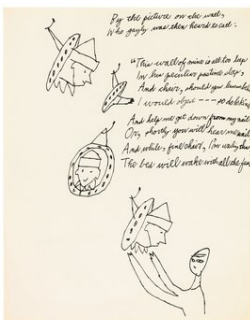 By the picture on the wall,
Who gayly was then heard to call:
"This wall of mine is all too
In her peculiar posture
And chair, should you
I would object ---- so
And help me get down from my nail
Or, shortly you will hear me wail
And while, fine chair, I'm
The bed will wake with all the